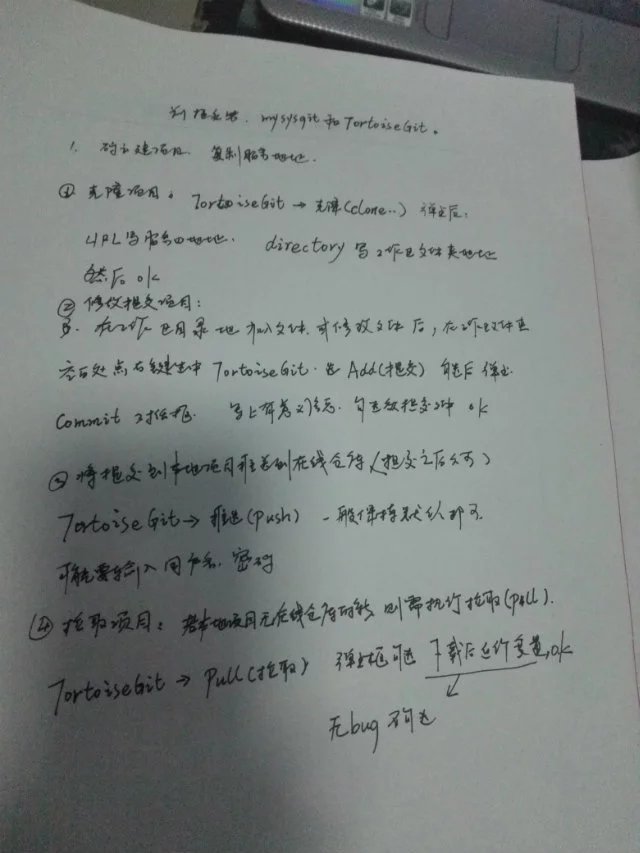 mysysgit和TortoiseGit。
1. 建项目. 复制服务地址.
① 克隆项目。 TortoiseGit → 克隆(clone..) 弹出后.
URL写服务地址. directory 写工作区文件夹地址
然后 ok
② 修改提交项目:
在工作区目录地加入文件.或修改文件后,在工作区文件夹
空白处点右键选中 TortoiseGit. 选 Add(提交) 完后弹出
Commit 对话框. 写上有意义信息. 勾选欲提交文件 ok
③ 将提交到本地项目推送到在线仓库(提交之后公可)
TortoiseGit → 推送(push) 一般保持默认即可
可能需要输入用户名.密码
④ 拉取项目: 若本地项目无在线仓库的新 则需执行拉取(pull).
TortoiseGit → Pull(拉取) 弹出框 勾选 下载后运行变基,ok
无bug 不勾选